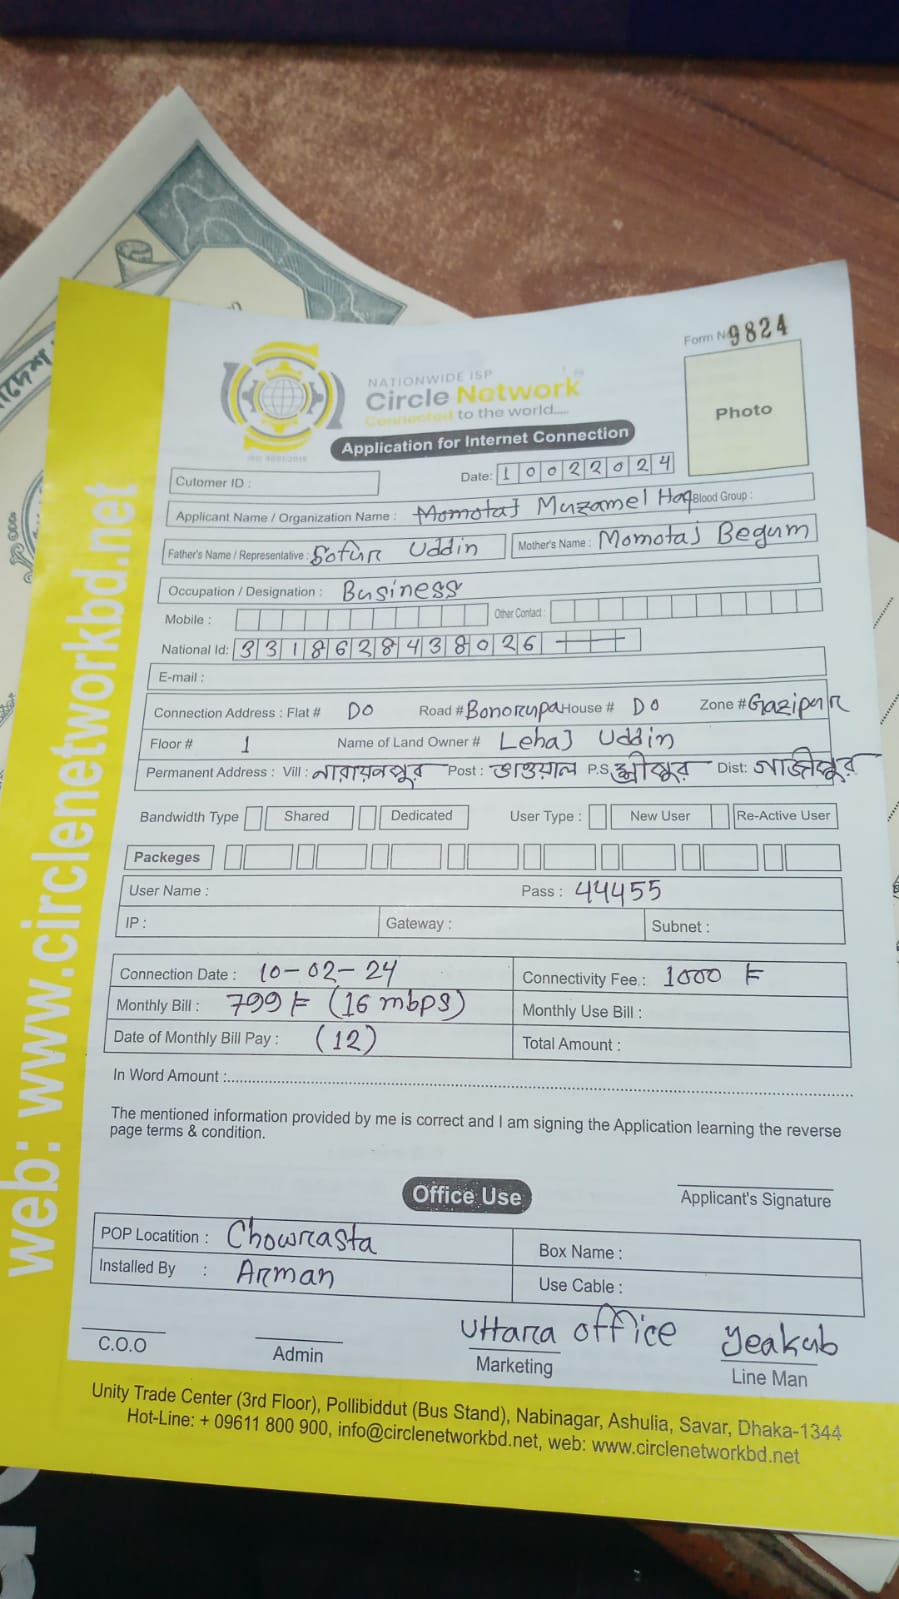 Form No 9824
NATIONWIDE ISP
Circle Network
Connected to the world....
ISO 9001:2015
Photo
Application for Internet Connection
Cutomer ID :
Date: 10022024
Applicant Name / Organization Name : Momotaj Muzamel Haq Blood Group :
Father's Name / Representative : Sofur Uddin Mother's Name : Momotaj Begum
Occupation / Designation : Business
Mobile : Other Contact :
National Id: 3318628438026
E-mail :
Connection Address : Flat # DO Road # Bonorupa House # DO Zone # Gazipur
Floor # 1 Name of Land Owner # Lehaj Uddin
Permanent Address : Vill : নারায়নপুর Post : ভাওয়াল P.S শ্রীপুর Dist: গাজীপুর
Bandwidth Type Shared Dedicated User Type : New User Re-Active User
Packeges
User Name : Pass : 44455
IP : Gateway : Subnet :
Connection Date : 10-02-24 Connectivity Fee : 1000 ৳
Monthly Bill : 799 ৳ (16 mbps) Monthly Use Bill :
Date of Monthly Bill Pay : (12) Total Amount :
In Word Amount :
The mentioned information provided by me is correct and I am signing the Application learning the reverse
page terms & condition.
Office Use
Applicant's Signature
POP Locatition : Chowrasta Box Name :
Installed By : Arman Use Cable :
Uttara office Yeakub
C.O.O Admin Marketing Line Man
Unity Trade Center (3rd Floor), Pollibiddut (Bus Stand), Nabinagar, Ashulia, Savar, Dhaka-1344
Hot-Line: + 09611 800 900, info@circlenetworkbd.net, web: www.circlenetworkbd.net
web: www.circlenetworkbd.net